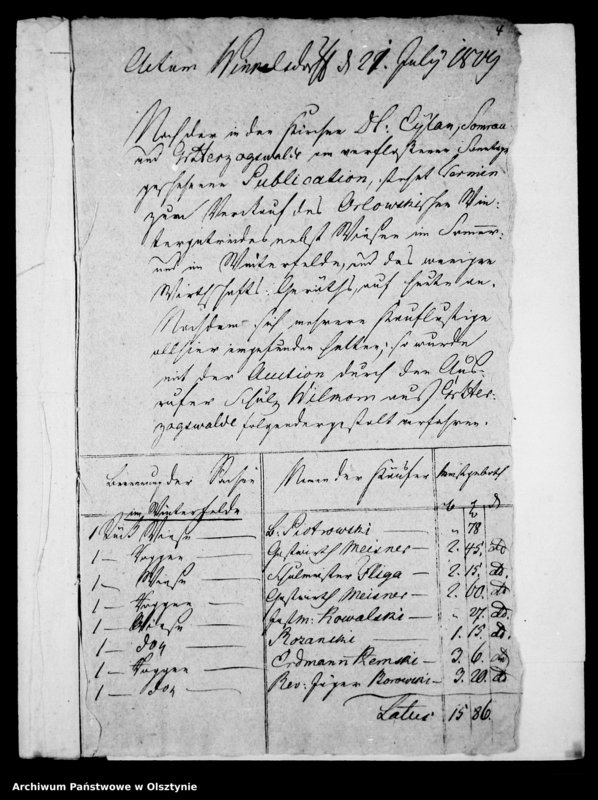 4
Actum Winkelsdorff d 21. July 1809
Nach der in den Kirchen Dt: Eylau, Somrau
und Groß Herzogswalde im verfloßenen Sonntage
geschehenen Publication, stehet Termin
zum Verkauf des Orlowskischen Win-
tergetreides nebst Wiesen im Sommer-
und im Winterfelde, und des wenigen
Wirthschafts-Geräths, auf heute an.
Nachdem sich mehrere Kauflustige
allhier eingefunden hatten; so wurde
mit der Auction durch den Aus-
rufer Schulz Wilmom aus Herzogswalde
folgendergestalt verfahren.
Benennung der Sachen Namen der Käufer Meistgeboth
im Winterfelde
1 Stück Wiese — Piotrowski — " 78
1 — Roggen — Gastwirth Meisner — 2. 45. do
1 — Wiese — Schulmeister Fliga — 2. 15. do.
1 — Roggen — Gastwirth Meisner — 2. 60. do
1 — Wiese — Kowalski — " 27. do.
1 — do — Rozanski — 1. 15. do.
1 — Roggen — Erdmann Remski — 3. 6. do
1 — do — Rev: Jäger Borowski — 3. 20. do
Latus 15 86.
Archiwum Państwowe w Olsztynie